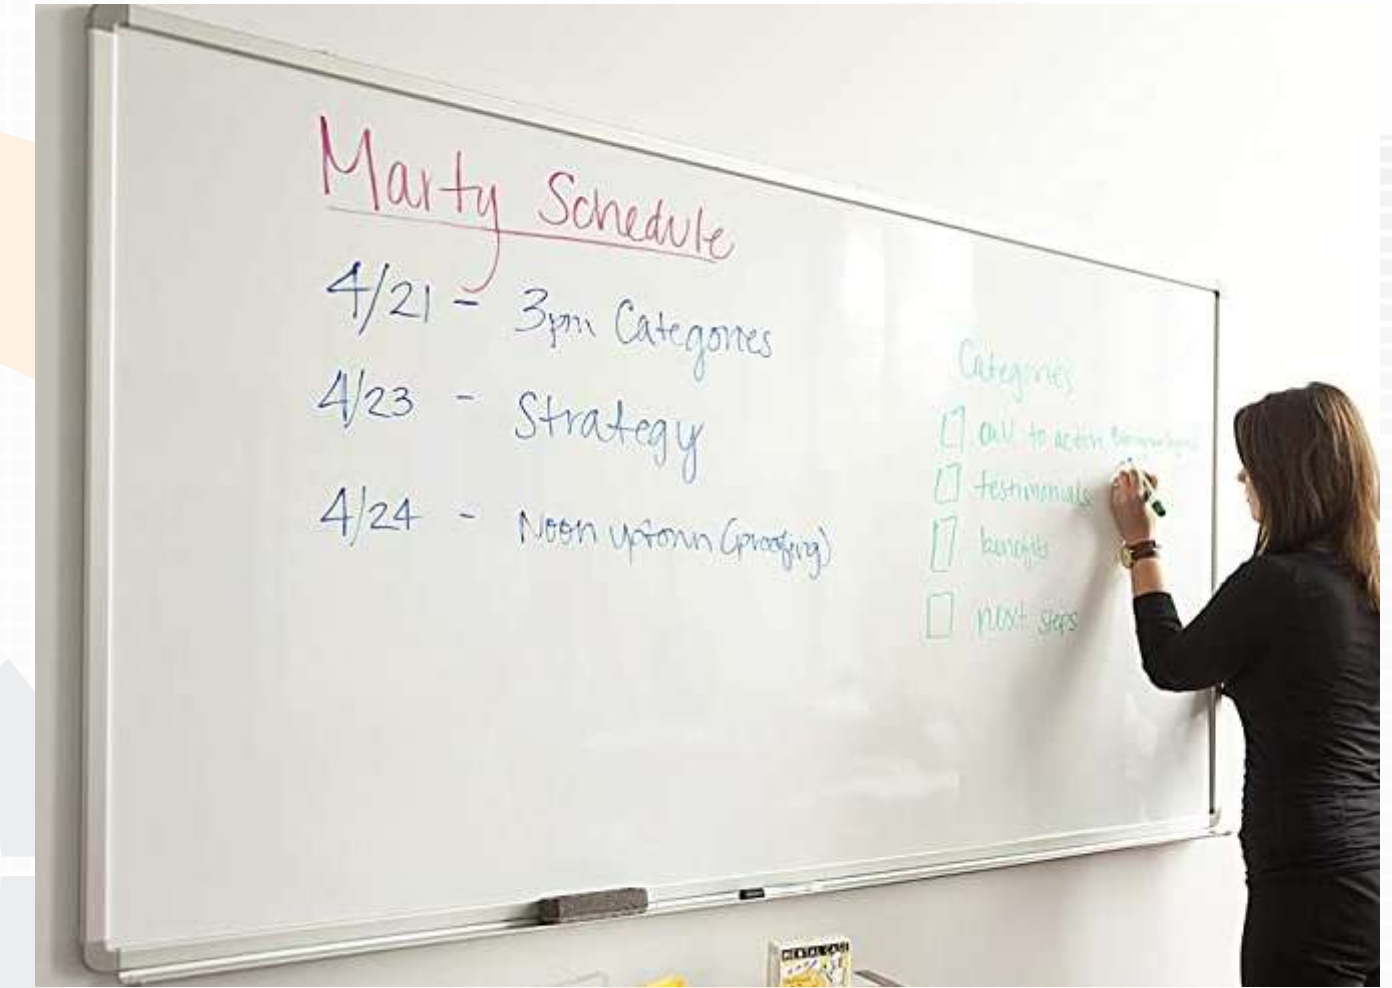 Marty Schedule
4/21 - 3pm Categories
4/23 - Strategy
4/24 - Noon uptown (proofing)
Categories
call to action
testimonials
benefits
next steps
MENTAL CASE